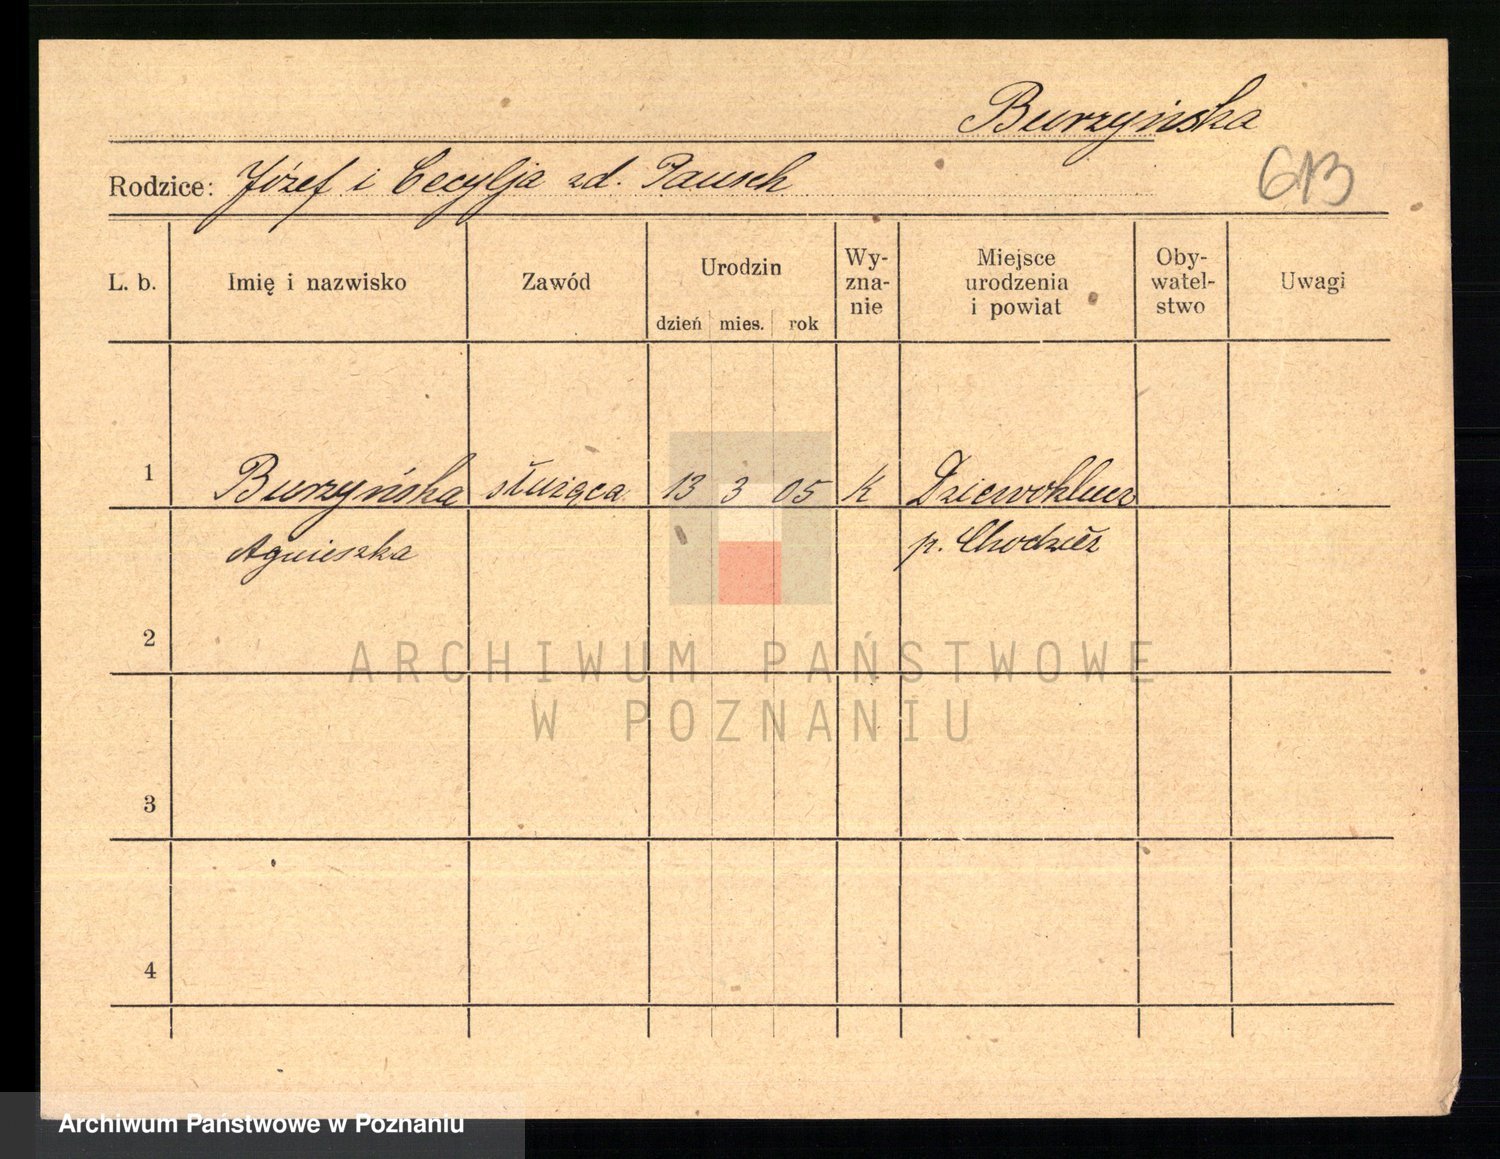 Burzyńska
613
Rodzice: Józef i Cecylja zd. Pausch
L. b.
Imię i nazwisko
Zawód
Urodzin
dzień mies. rok
Wy-
zna-
nie
Miejsce
urodzenia
i powiat
Oby-
watel-
stwo
Uwagi
1 Burzyńska służąca 13 3 05 k Dziewoklucz
Agnieszka p. Chodzież
2
3
4
ARCHIWUM PAŃSTWOWE
W POZNANIU
Archiwum Państwowe w Poznaniu